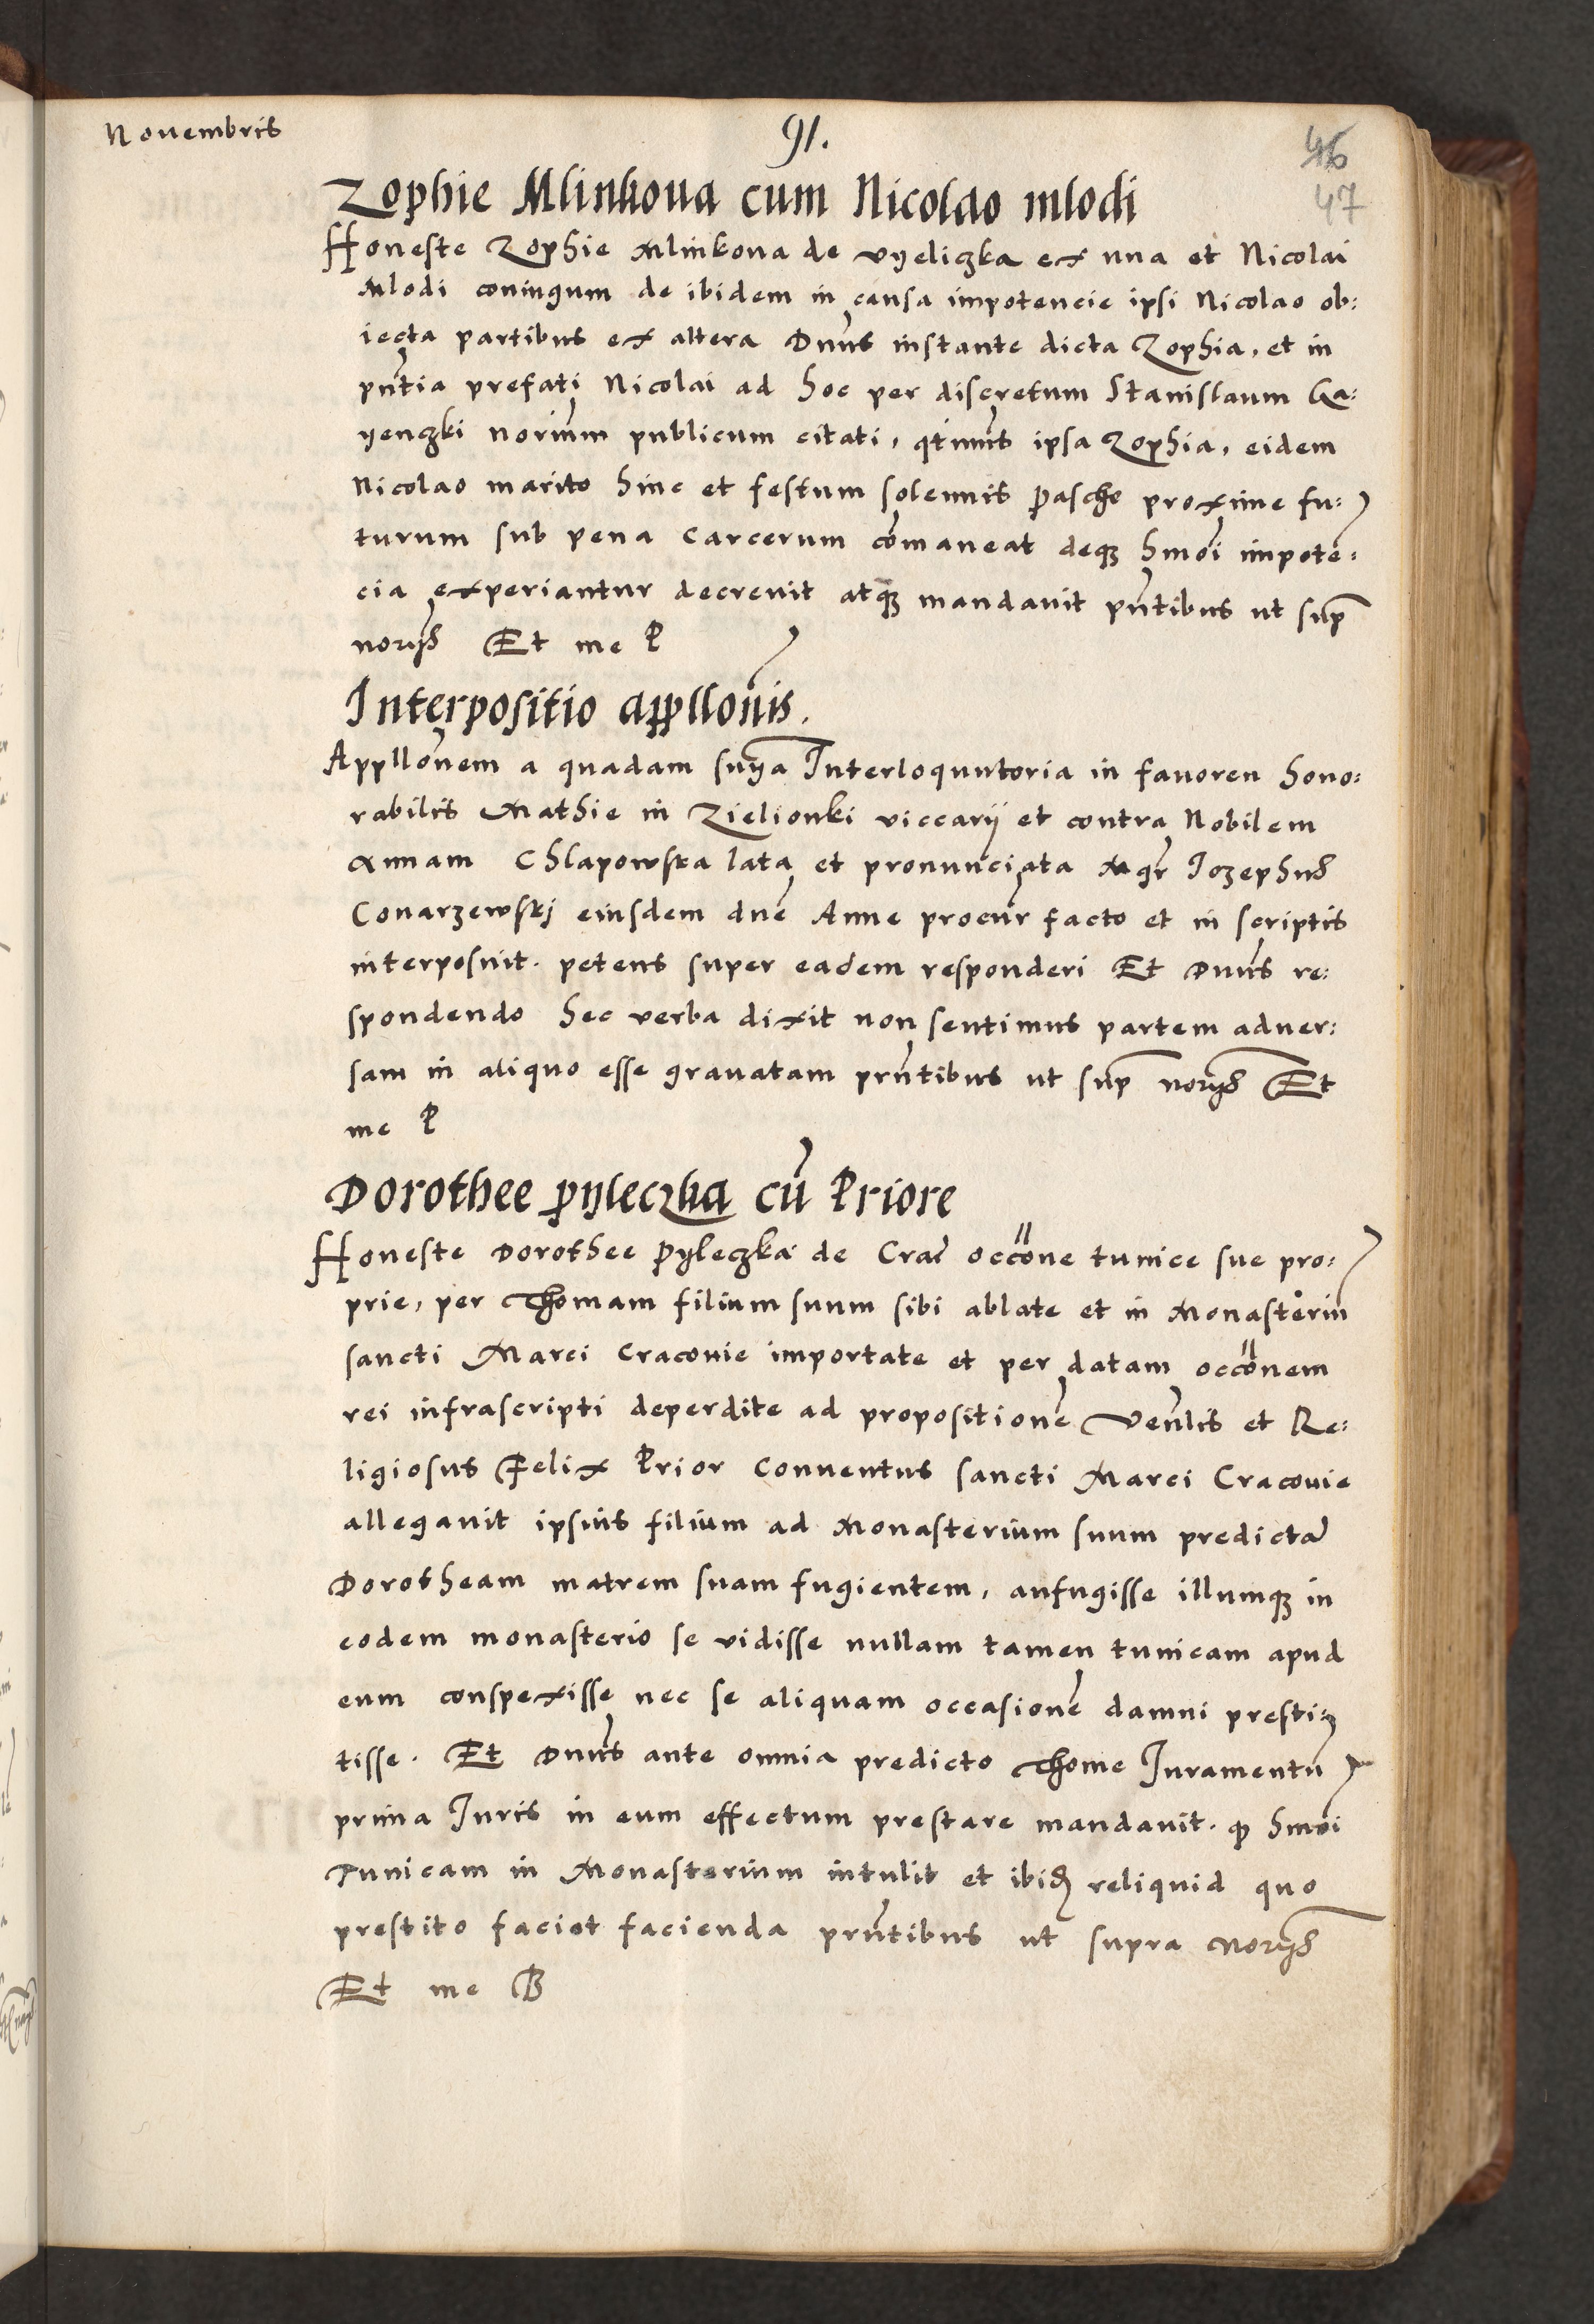 Novembris
91.
46
47
Zophie Mlinkova cum Nicolao mlodi
Honeste Zophie Mlinkova de vyeliczka ex una et Nicolai
Mlodi coniugum de ibidem in causa impotencie ipsi Nicolao ob:
iecta partibus ex altera Dnus instante dicta Zophia, et in
pntia prefati Nicolai ad hoc per discretum Stanislaum Ga:
yenczki norium publicum citati, qtinus ipsa Zophia, eidem
Nicolao marito hinc et festum solennis Pasche proxime fu:
turum sub pena carcerum comaneat deqz hmoi impote:
cia experiantur decrevit atqz mandavit pntibus ut sup
norys Et me P
Interpositio appllonis.
Appllonem a quadam snya Interloquutoria in favoren hono:
rabilis Mathie in Zielionki viccarij et contra Nobilem
Annam Chlapowska lata et pronunciata Mgr Iozephus
Conarzewskj eiusdem dne Anne procur facto et in scriptis
interposuit. petens super eadem responderi Et Dnus re:
spondendo hec verba dixit non sentimus partem adver:
sam in aliquo esse gravatam prntibus ut sup norys Et
me P
Dorothee pyleczka cu Priore
Honeste Dorothee Pyleczka de Cra occone tunice sue pro:
prie, per Thomam filium suum sibi ablate et in Monasteriu
sancti Marci Cracovie importate et per datam occonem
rei infrascripti deperdite ad propositione Venlis et Re:
ligiosus Felix Prior Conventus sancti Marci Cracovie
allegavit ipsius filium ad Monasterium suum predicta
Dorotheam matrem suam fugientem, aufugisse illumqz in
eodem monasterio se vidisse nullam tamen tunicam apud
eum conspexisse nec se aliquam occasione damni presti:
tisse. Et Dnus ante omnia predicto Thome Iuramentu
prima Iuris in eum effectum prestare mandavit. q hmoi
Tunicam in Monasterium intulit et ibid reliquid quo
prestito faciet facienda prntibus ut supra norys
Et me B